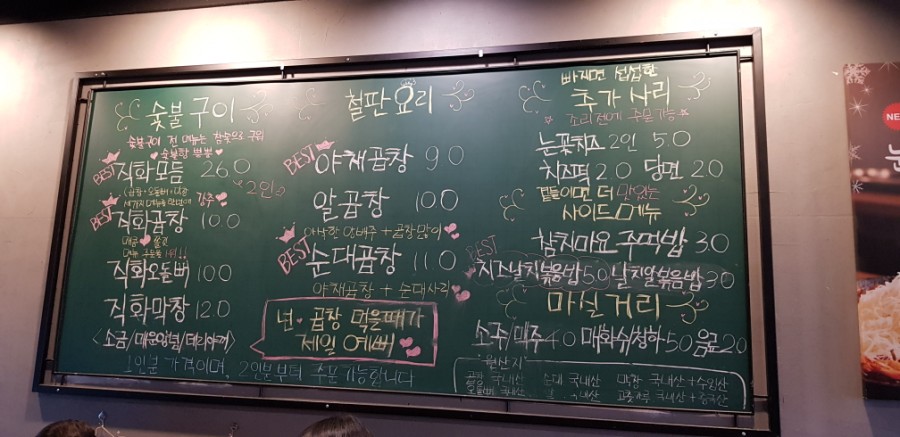 숯불구이
숯불구이 전 메뉴는 참숯으로 구워
숯불향 뿜뿜
BEST 직화모듬 26.0
2인
강추
BEST 직화곱창 10.0
직화오돌뼈 10.0
직화막창 12.0
<소금/매운양념/데리야끼>
1인분 가격이며, 2인분부터 주문가능합니다
철판요리
BEST 야채곱창 9.0
알곱창 10.0
아삭한 양배추 + 곱창많이
BEST 순대곱창 11.0
야채곱창 + 순대사리
넌 곱창 먹을때가
제일 예뻐
빠지면 섭섭한
추가사리
조리전에 주문가능
눈꽃치즈 2인 5.0
치즈떡 2.0 당면 2.0
곁들이면 더 맛있는
사이드메뉴
참치마요주먹밥 3.0
BEST 치즈날치볶음밥 5.0 날치알볶음밥 3.0
마실거리
소주/맥주 4.0 매화수/청하 5.0 음료 2.0
원산지
곱창 국내산 순대 국내산 막창 국내산+수입산
국내산 국내산+중국산
NE
눈